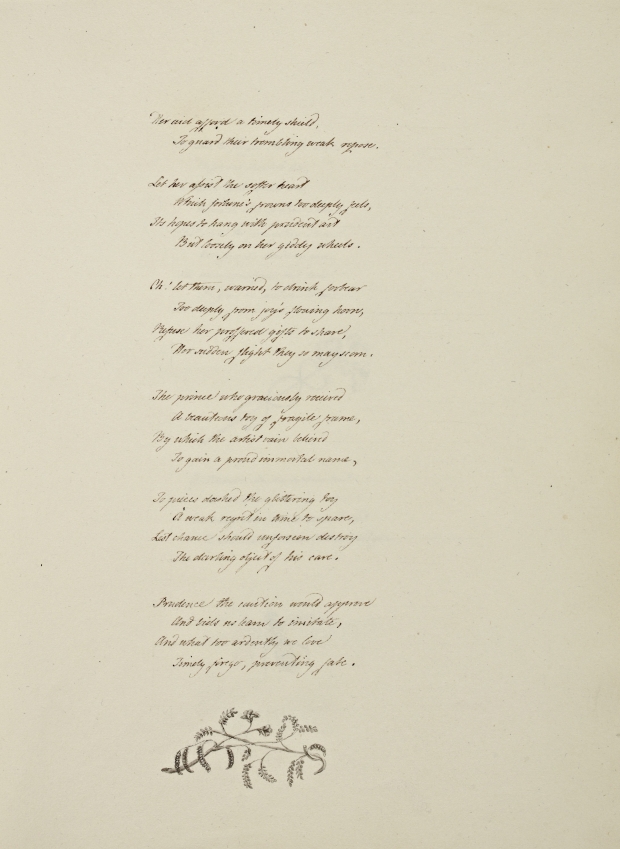 Her aid afford a timely shield,
To guard their trembling weak repose.
Let her assist the softer heart
Which fortune's frowns too deeply feels,
Its hopes to hang with prudent art
But loosely on her giddy wheels.
Oh! let them, warned, to drink forbear
Too deeply from joy's flowing horn,
Refuse her proffered gifts to share,
Her sudden flight they so may scorn.
The prince who graciously received
A beauteous toy of fragile frame,
By which the artist vain believed
To gain a proud immortal name,
To pieces dashed the glittering toy
A weak regret in time to spare,
Lest chance should unforseen destroy
The darling object of his care.
Prudence the caution would approve
And bids us learn to imitate,
And what too ardently we love
Timely forego, preventing fate.